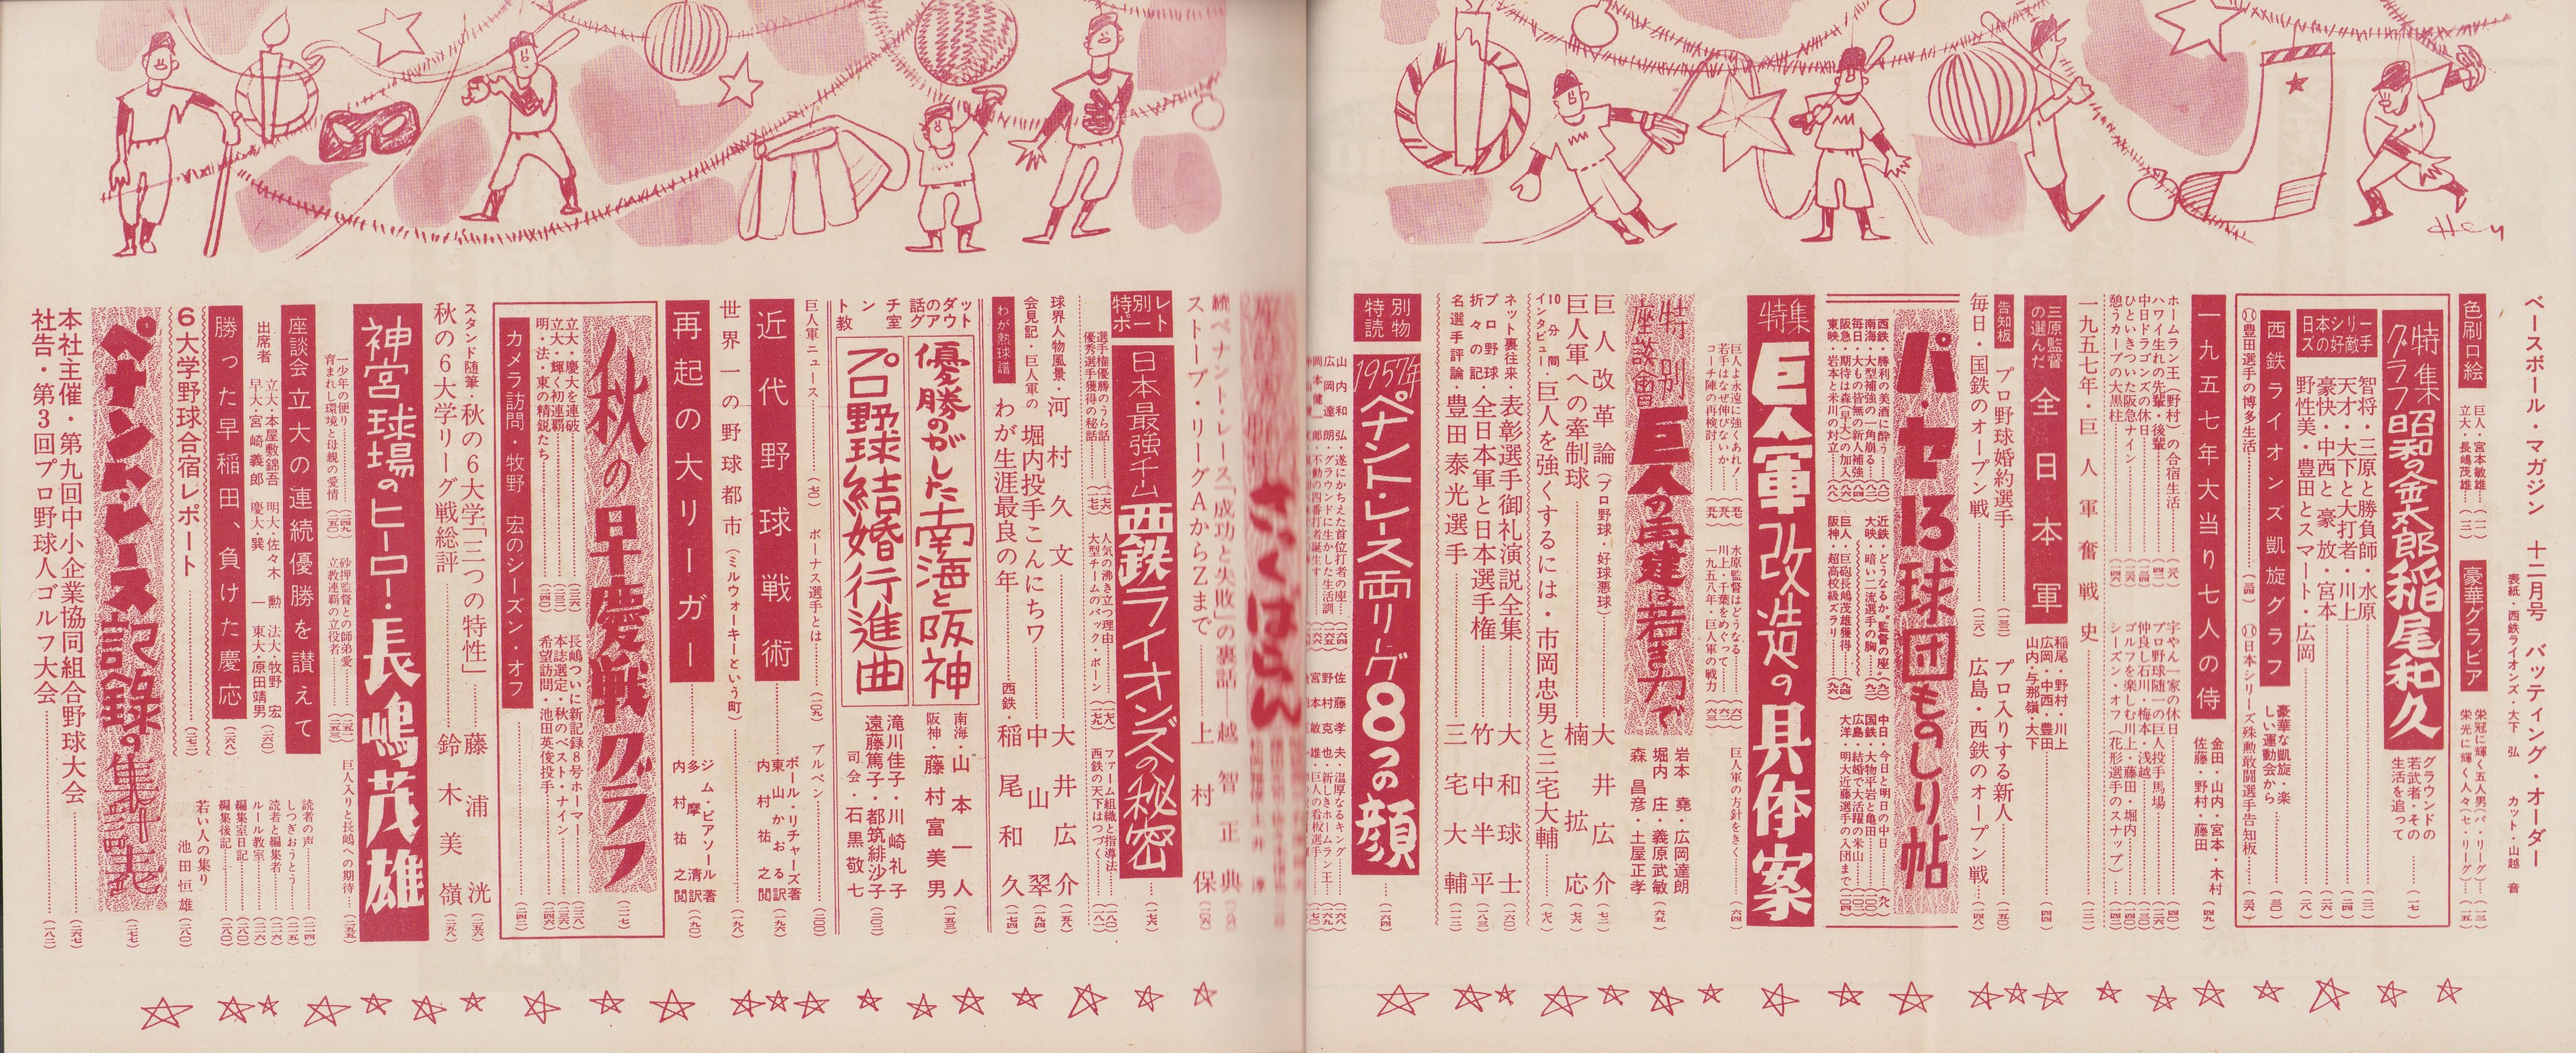 ベースボール・マガジン 十二月号 バッティング・オーダー
表紙・西鉄ライオンズ・大下 弘 カット・山越 音
色刷口絵
巨人・宮本敏雄
立大・長嶋茂雄
豪華グラビア
栄冠に輝く五人男(パ・リーグ)
栄光に輝く人々(セ・リーグ)
特集グラフ
昭和の金太郎稲尾和久
グラウンドの
若武者・その
生活を追って
日本シリーズの好敵手
智将・三原と勝負師・水原
天才・大下と大打者・川上
豪快・中西と豪放・宮本
野性美・豊田とスマート・広岡
西鉄ライオンズ凱旋グラフ
豪華な凱旋・楽
しい運動会から
豊田選手の博多生活
日本シリーズ殊勲敢闘選手告知板
一九五七年大当り七人の侍
金田・山内・宮本・木村
佐藤・野村・藤田
ホームラン王(野村)の合宿生活
ハワイ生れの先輩・後輩
中日ドラゴンズの休日
ひといきついた阪急ナイン
憩うカープの大黒柱
宇やん一家の休日
プロ野球随一の巨人投手馬場
仲良し石川・梅本・浅越
ゴルフを楽しむ川上・藤田・堀内
シーズン・オフ(花形選手のスナップ)
一九五七年・巨人軍奮戦史
三原監督の選んだ
全日本軍
稲尾・野村・川上
広岡・中西・豊田
山内・与那嶺・大下
告知板
プロ野球婚約選手
プロ入りする新人
毎日・国鉄のオープン戦
広島・西鉄のオープン戦
パ・セ13球団ものしり帖
西鉄・勝利の美酒に酔う
南海・大型補強の一角崩る
毎日・大もの皆無の新人補強
阪急・期待は森(早大)の加入
東映・岩本と米川の対立
近鉄・どうなるか監督の座
大映・暗い二流選手の胸
巨人・巨砲長嶋茂雄獲得
阪神・超高校級ズラリ
中日・今日と明日の中日
国鉄・大物平岩と亀田
広島・結婚で大活躍の米山
大洋・明大近藤選手の入団まで
特集
巨人軍改造の具体案
巨人よ永遠に強くあれ!
若手はなぜ伸びないか
コーチ陣の再検討
水原監督はどうなる
川上・千葉をめぐって
一九五八年・巨人軍の戦力
巨人軍の方針をきく
特別座談会
巨人の再建は若き力で
岩本 堯・広岡達朗
堀内 庄・義原武敏
森 昌彦・土屋正孝
巨人改革論(プロ野球・好球悪球) 大井広介
巨人軍への牽制球 楠 拡応
10分間インタビュー・巨人を強くするには・市岡忠男と三宅大輔
ネット裏往来・表彰選手御礼演説全集 大和球士
プロ野球折々の記・全日本軍と日本選手権 竹中半平
名選手評論・豊田泰光選手 三宅大輔
特別読物
1957年ペナント・レース両リーグ8つの顔
山内和弘・遂にかちえた首位打者の座
広岡達朗・グラウンドに生かした生活訓
佐藤孝夫・温厚なるキング
野村克也・新しきホームラン王
宮本敏雄・巨人の看板選手
続ペナント・レース「成功と失敗」の裏話 越智正典
ストーブ・リーグAからZまで 上村 保
特別レポート
日本最強チーム
西鉄ライオンズの秘密
選手権優勝のうら話
優秀選手獲得の秘話
人気の沸き立つ理由
大型チームのバック・ボーン
ファーム組織と指導法
西鉄の天下はつづく
球界人物風景・河村久文 大井広介
会見記・巨人軍の堀内投手こんにちワ 中山 翠
わが熱球譜
わが生涯最良の年 西鉄・稲尾和久
ダッグアウトの話
優勝のがした南海と阪神
南海・山本一人
阪神・藤村富美男
トンチ教室
プロ野球結婚行進曲
滝川佳子・川崎礼子
遠藤篤子・都筑緋沙子
司会・石黒敬七
巨人軍ニュース
ボーナス選手とは
ブルペン
近代野球戦術
ポール・リチャーズ著
東山かおる訳
内村祐之閲
世界一の野球都市(ミルウォーキーという町)
再起の大リーガー
ジム・ピアソール著
多摩 清訳
内村祐之閲
秋の早慶戦グラフ
立大・慶大を連破
立大・輝く初連覇
明・法・東の精鋭たち
長嶋ついに新記録8号ホーマー
本誌選定・秋のベスト・ナイン
希望訪問・池田英俊投手
カメラ訪問・牧野 宏のシーズン・オフ
スタンド随筆・秋の6大学「三つの特性」 藤浦 洸
秋の6大学リーグ戦総評 鈴木美嶺
神宮球場のヒーロー・長嶋茂雄
一少年の便り
育まれし環境と母親の愛情
砂押監督との師弟愛
立教連覇の立役者
巨人入りと長嶋への期待
座談会
立大の連続優勝を讃えて
出席者
立大・本屋敷錦吾 明大・佐々木 勲 法大・牧野 宏
早大・宮崎義郎 慶大・巽 一 東大・原田靖男
勝った早稲田、負けた慶応
読者の声
しつぎおうとう
読者と編集者
ルール教室
編集室日記
編集後記
6大学野球合宿レポート
若い人の集り
池田恒雄
ペナント・レース記録・集計表
本社主催・第九回中小企業協同組合野球大会
社告・第3回プロ野球人ゴルフ大会
Hey